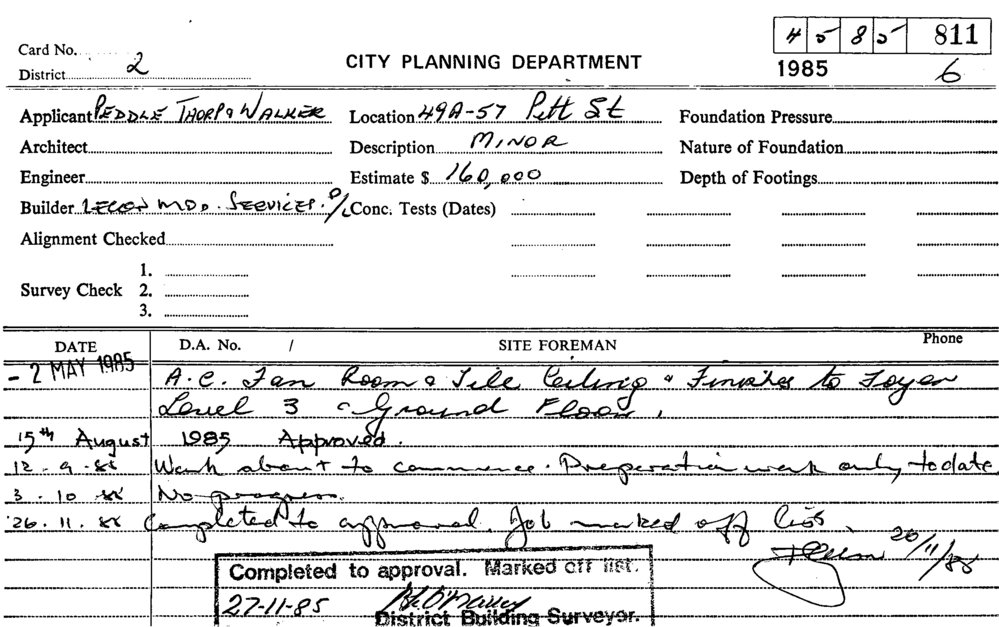 45 85 811
Card No.
CITY PLANNING DEPARTMENT
District 2
1985 6
Applicant PEDDLE THORP & WALKER Location 49A-57 Pitt St Foundation Pressure
Architect Description MINOR Nature of Foundation
Engineer Estimate $ 160,000 Depth of Footings
Builder SERVICES P/L Conc. Tests (Dates)
Alignment Checked
1.
Survey Check 2.
3.
DATE D.A. No. / SITE FOREMAN Phone
- 2 MAY 1985 A.C. Fan Room & Tile Ceiling & Finishes to Foyer
Level 3 & Ground Floor.
15th August 1985 Approved.
12.9.85 Work about to commence. Preparation work only to date
3.10.85 No progress.
26.11.85 Completed to approval. Job marked off list.
26/11/85
Completed to approval. Marked off list.
27-11-85
District Building Surveyor.